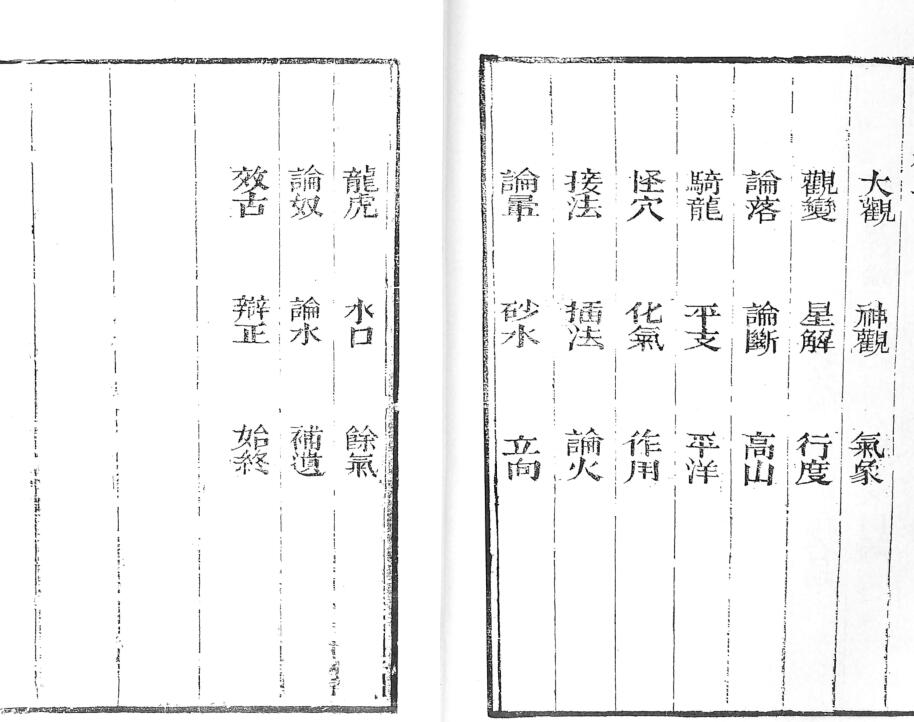 大觀　神觀　氣象
觀變　星解　行度
論落　論斷　高山
騎龍　平支　平洋
怪穴　化氣　作用
接法　插法　論火
論暈　砂水　立向
龍虎　水口　餘氣
論奴　論水　補遺
效古　辯正　始終